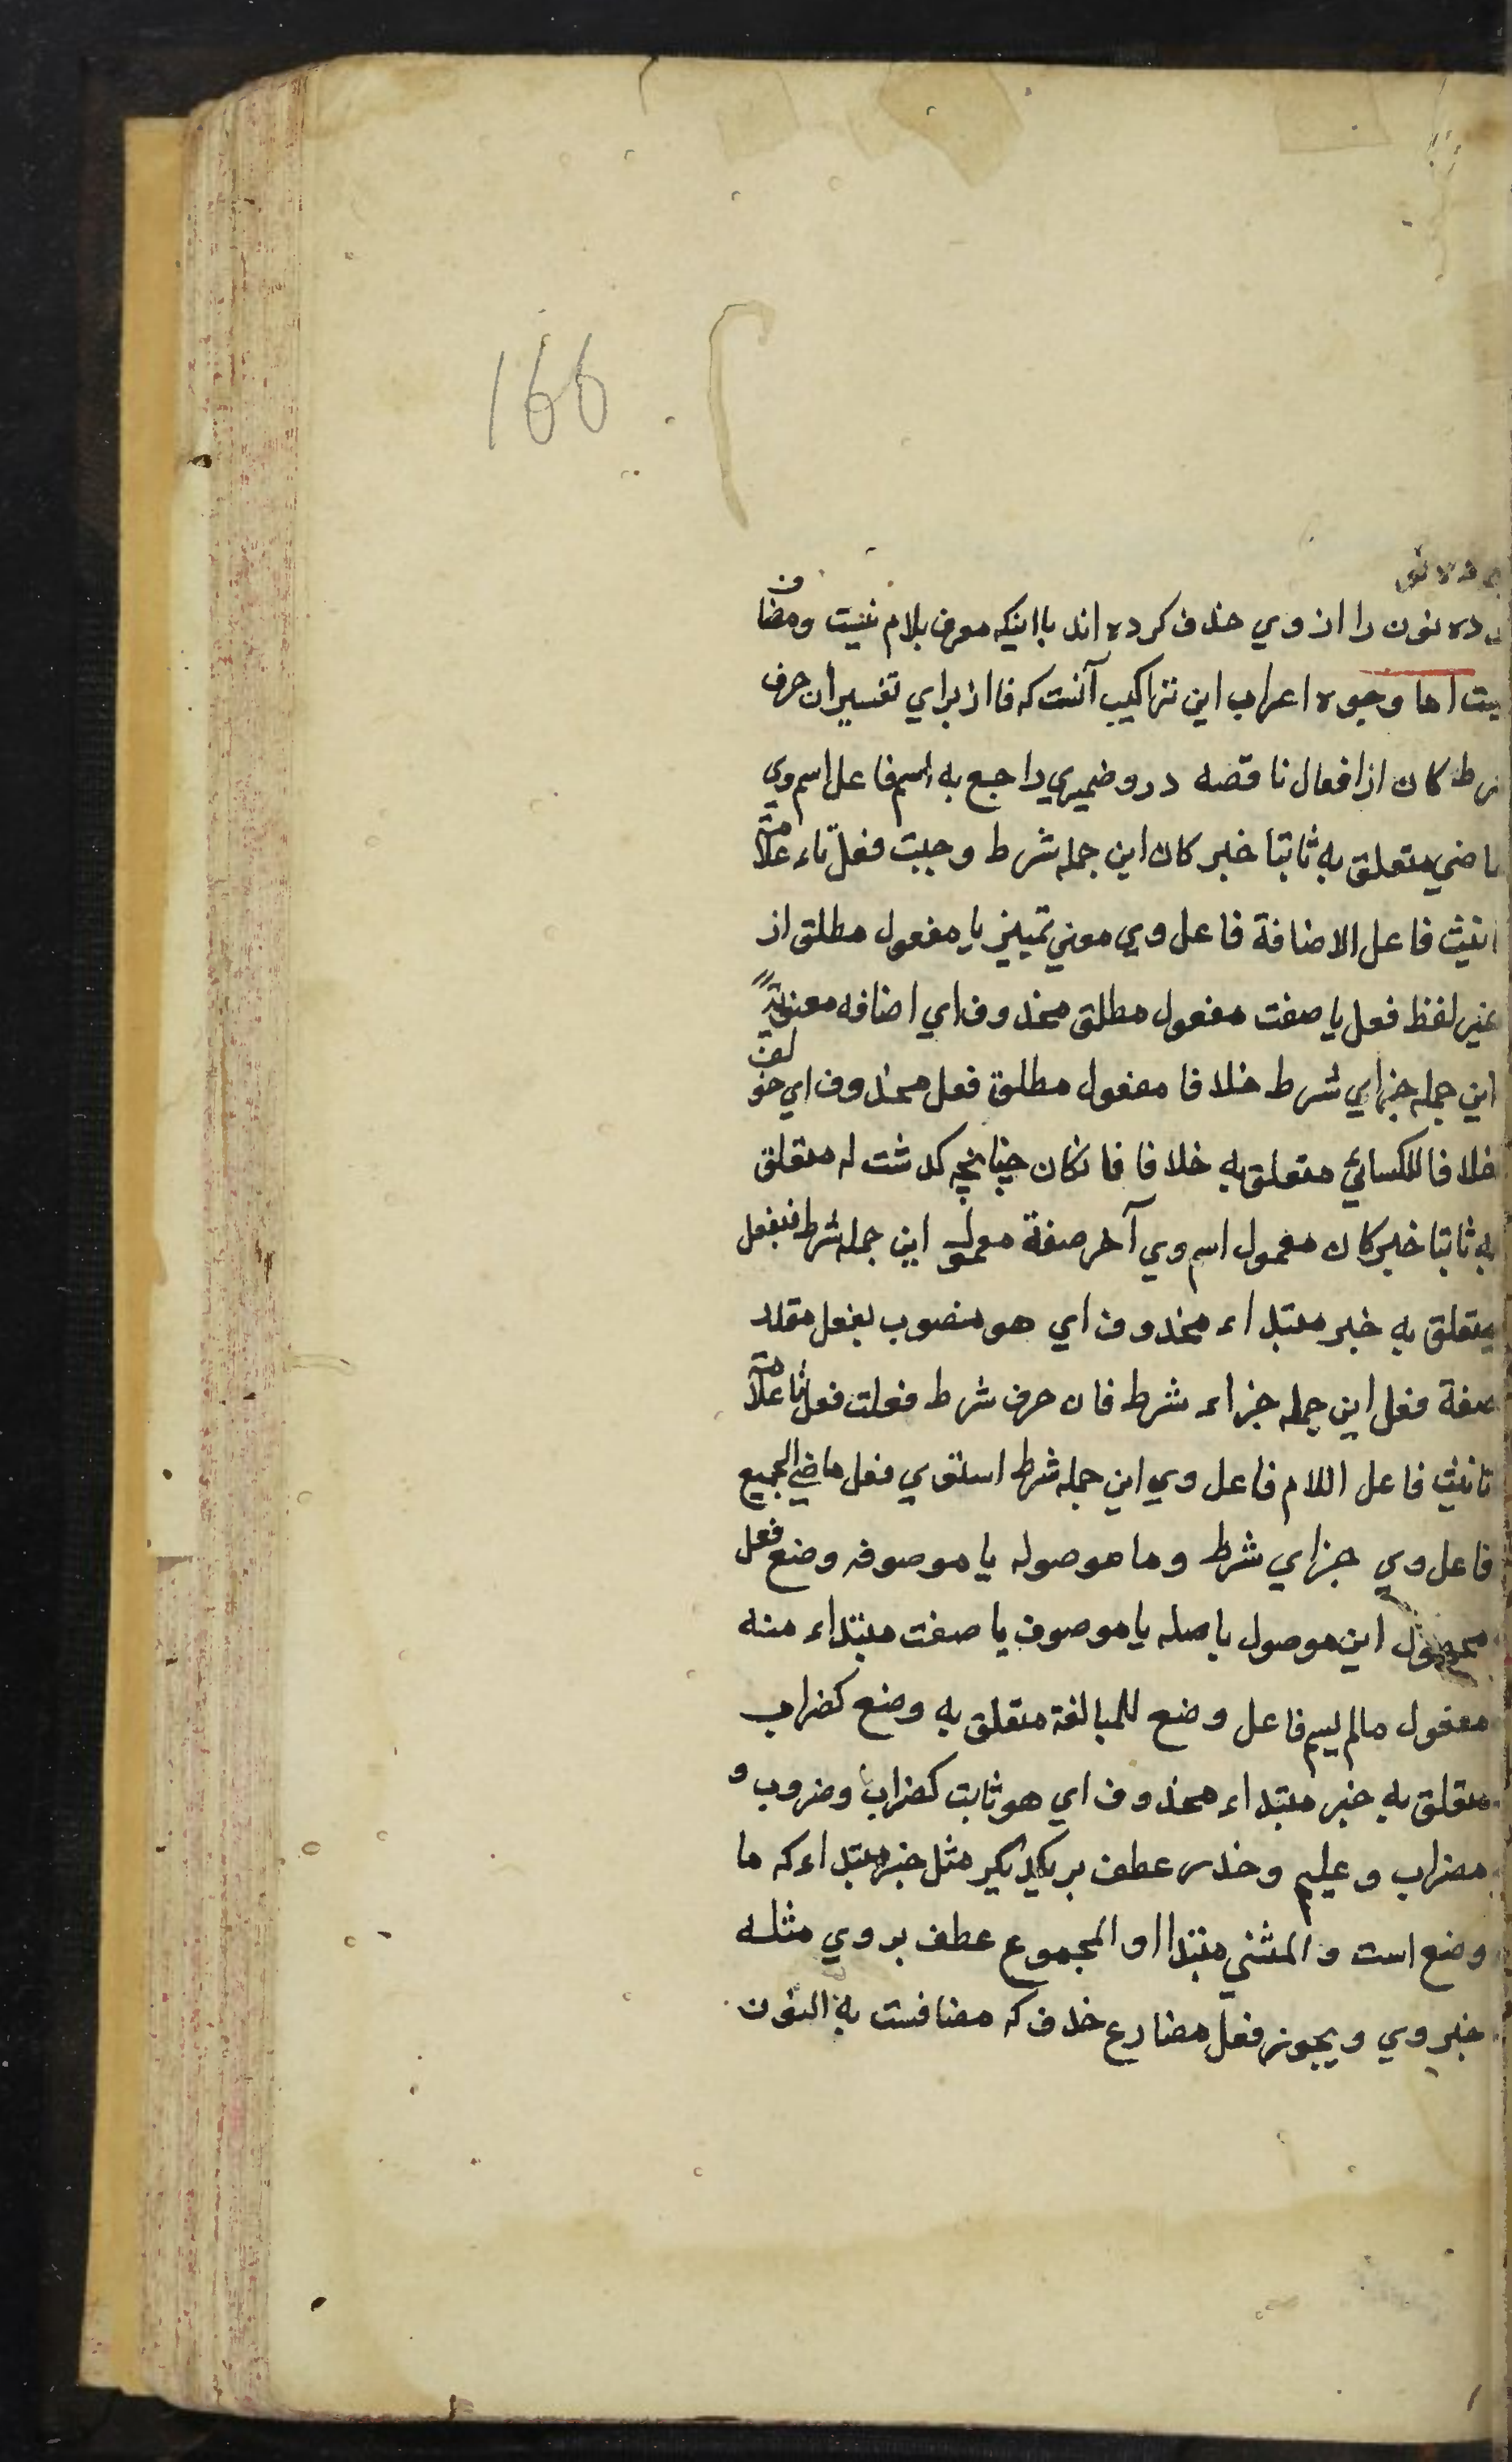 166
ده نون را از وي حذف كرده اند با اينكه معرف بلام نيست ومضاف
يست اما وجوه اعراب اين تراكيب آنست كه فا از براي تفسير ان حرف
شرط كان از افعال ناقصه درو ضميري راجع به اسم فاعل اسم وي
ماضي متعلق به ثابتا خبر كان اين جمله شرط وجبت فعل تاء علامة
تانيث فاعل الاضافة فاعل وي معني تمييز يا مفعول مطلق از
غير لفظ فعل يا صفت مفعول مطلق محذوف اي اضافه معنوية
اين جمله جزاي شرط خلافا مفعول مطلق فعل محذوف اي خولف
خلافا للكسائي متعلق به خلافا فان كان چنانچه كدشت له متعلق
به ثابتا خبر كان معمول اسم وي آخر صفة معمول اين جمله شرط فبفعل
متعلق به خبر مبتداء محذوف اي هو منصوب بفعل مقدر
صفة فعل اين جمله جزاء شرط فان حرف شرط فعلت فعل تا علامة
تانيث فاعل اللام فاعل وي اين جمله شرط استوي فعل ماضي الجميع
فاعل وي جزاي شرط وما موصوله يا موصوفه وضع فعل
مجهول اين موصول باصله يا موصوف يا صفت مبتداء منه
مفعول مالم يسم فاعل وضع للمبالغة متعلق به وضع كضراب
متعلق به خبر مبتداء محذوف اي هو ثابت كضراب وضروب و
مضراب وعليم وحذر عطف بر يكديكر مثل خبر مبتداء كه ما
وضع است والمثني مبتدا او المجموع عطف بر وي مثله
خبر وي ويجوز فعل مضارع حذف كه مضافست به النون